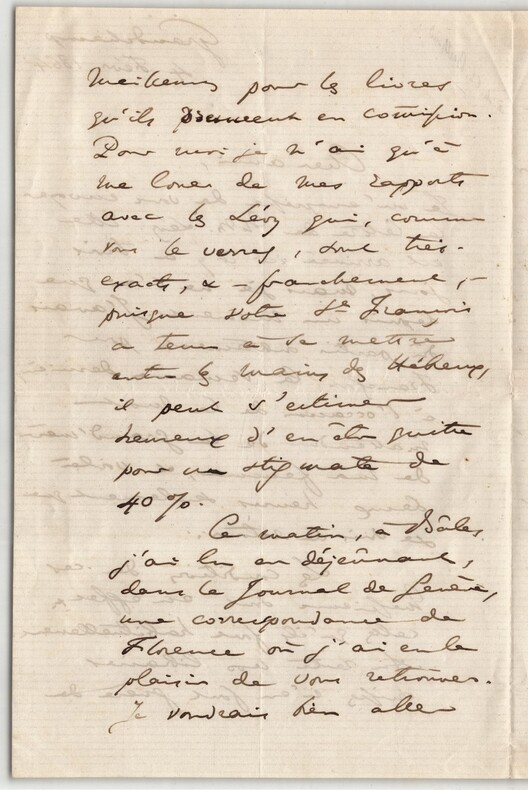 pour les livres
qu'ils prennent en comission.
Pour moi je n'ai qu'à
me louer de mes rapports
avec les Lévy qui, comme
vous le verrez, sont très-
exacts, & – franchement, –
puisque votre St François
a tenu à se mettre
entre les mains des Hébreux,
il peut s'estimer
heureux d'en être quitte
pour un stigmate de
40 %.
Ce matin, à Bâle,
j'ai lu en déjeûnant,
dans le Journal de Genève,
une correspondance de
Florence où j'ai eu le
plaisir de vous retrouver.
Je voudrais bien aller